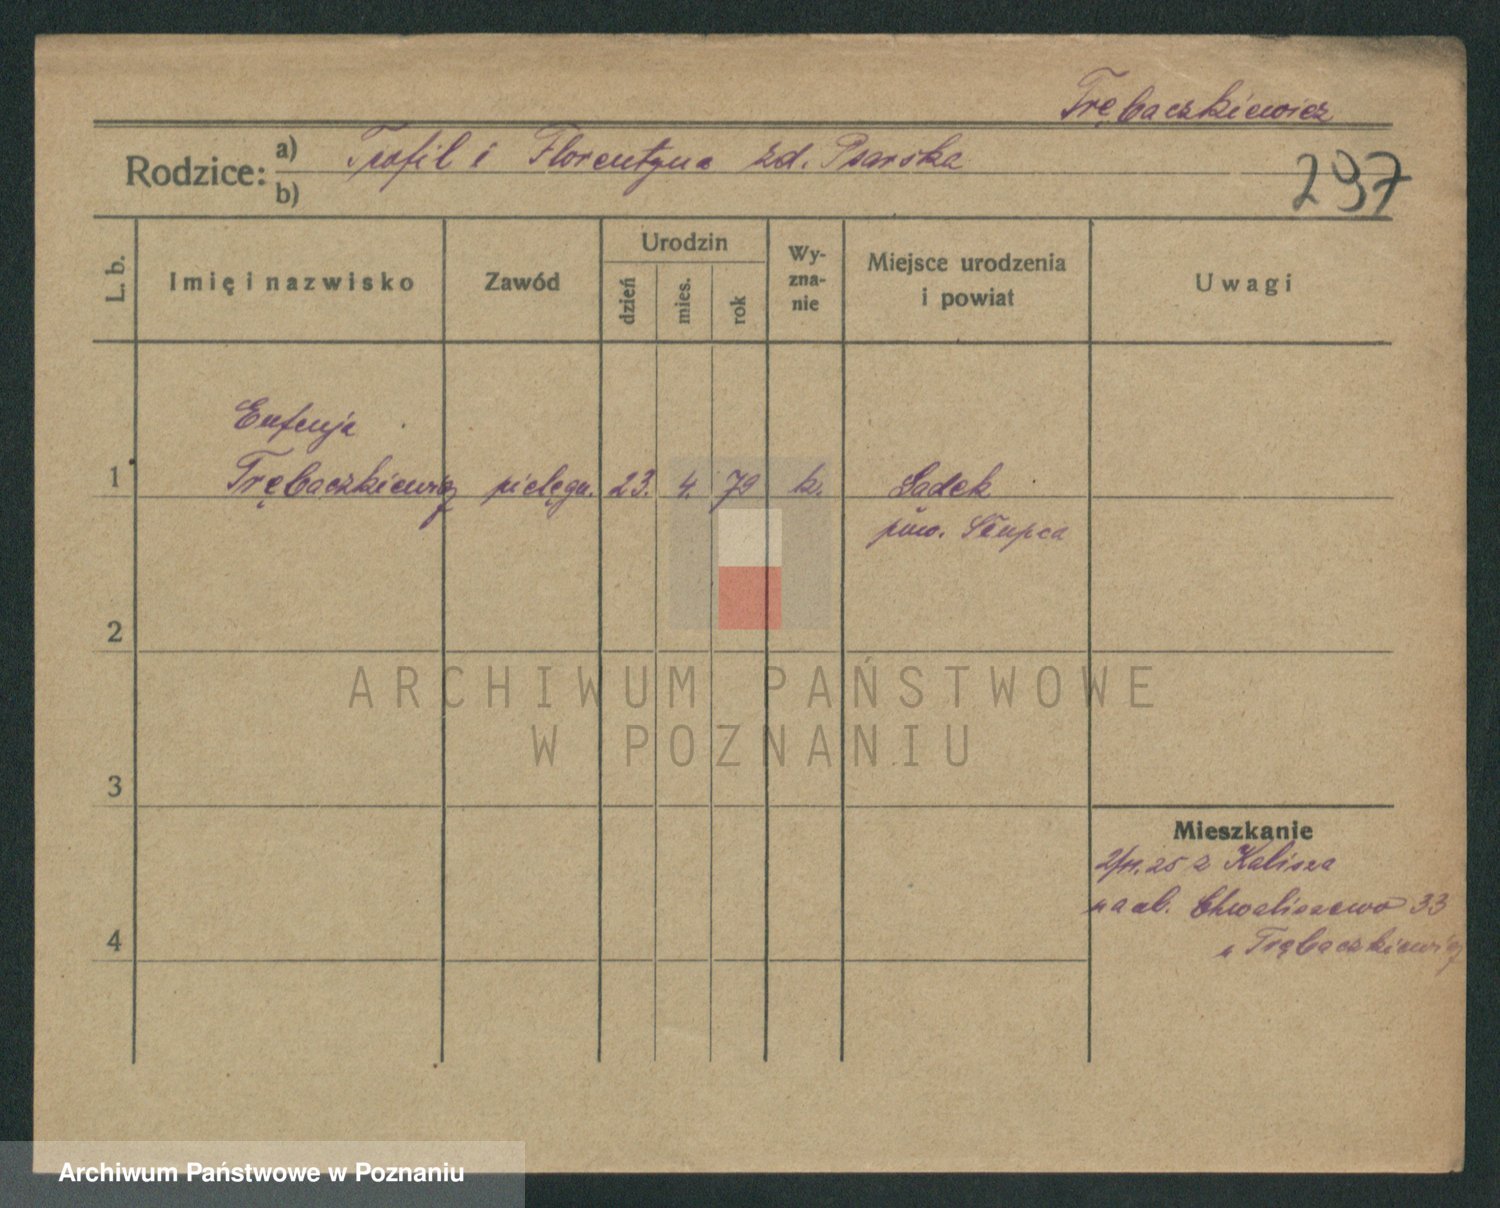 Trębaczkiewicz
Rodzice: a) Teofil i Florentyna zd. Psarska
b)
297
L. b.
Imię i nazwisko
Zawód
Urodzin
dzień
mies.
rok
Wy-
zna-
nie
Miejsce urodzenia
i powiat
Uwagi
Eufenja
1 Trębaczkiewicz pielęgn. 23. 4. 79 k. Sadek
pow. Słupca
2
3
4
Mieszkanie
25 z Kalisza
na ul. Chwaliszewo 33
u Trębaczkiewicz
ARCHIWUM PAŃSTWOWE
W POZNANIU
Archiwum Państwowe w Poznaniu